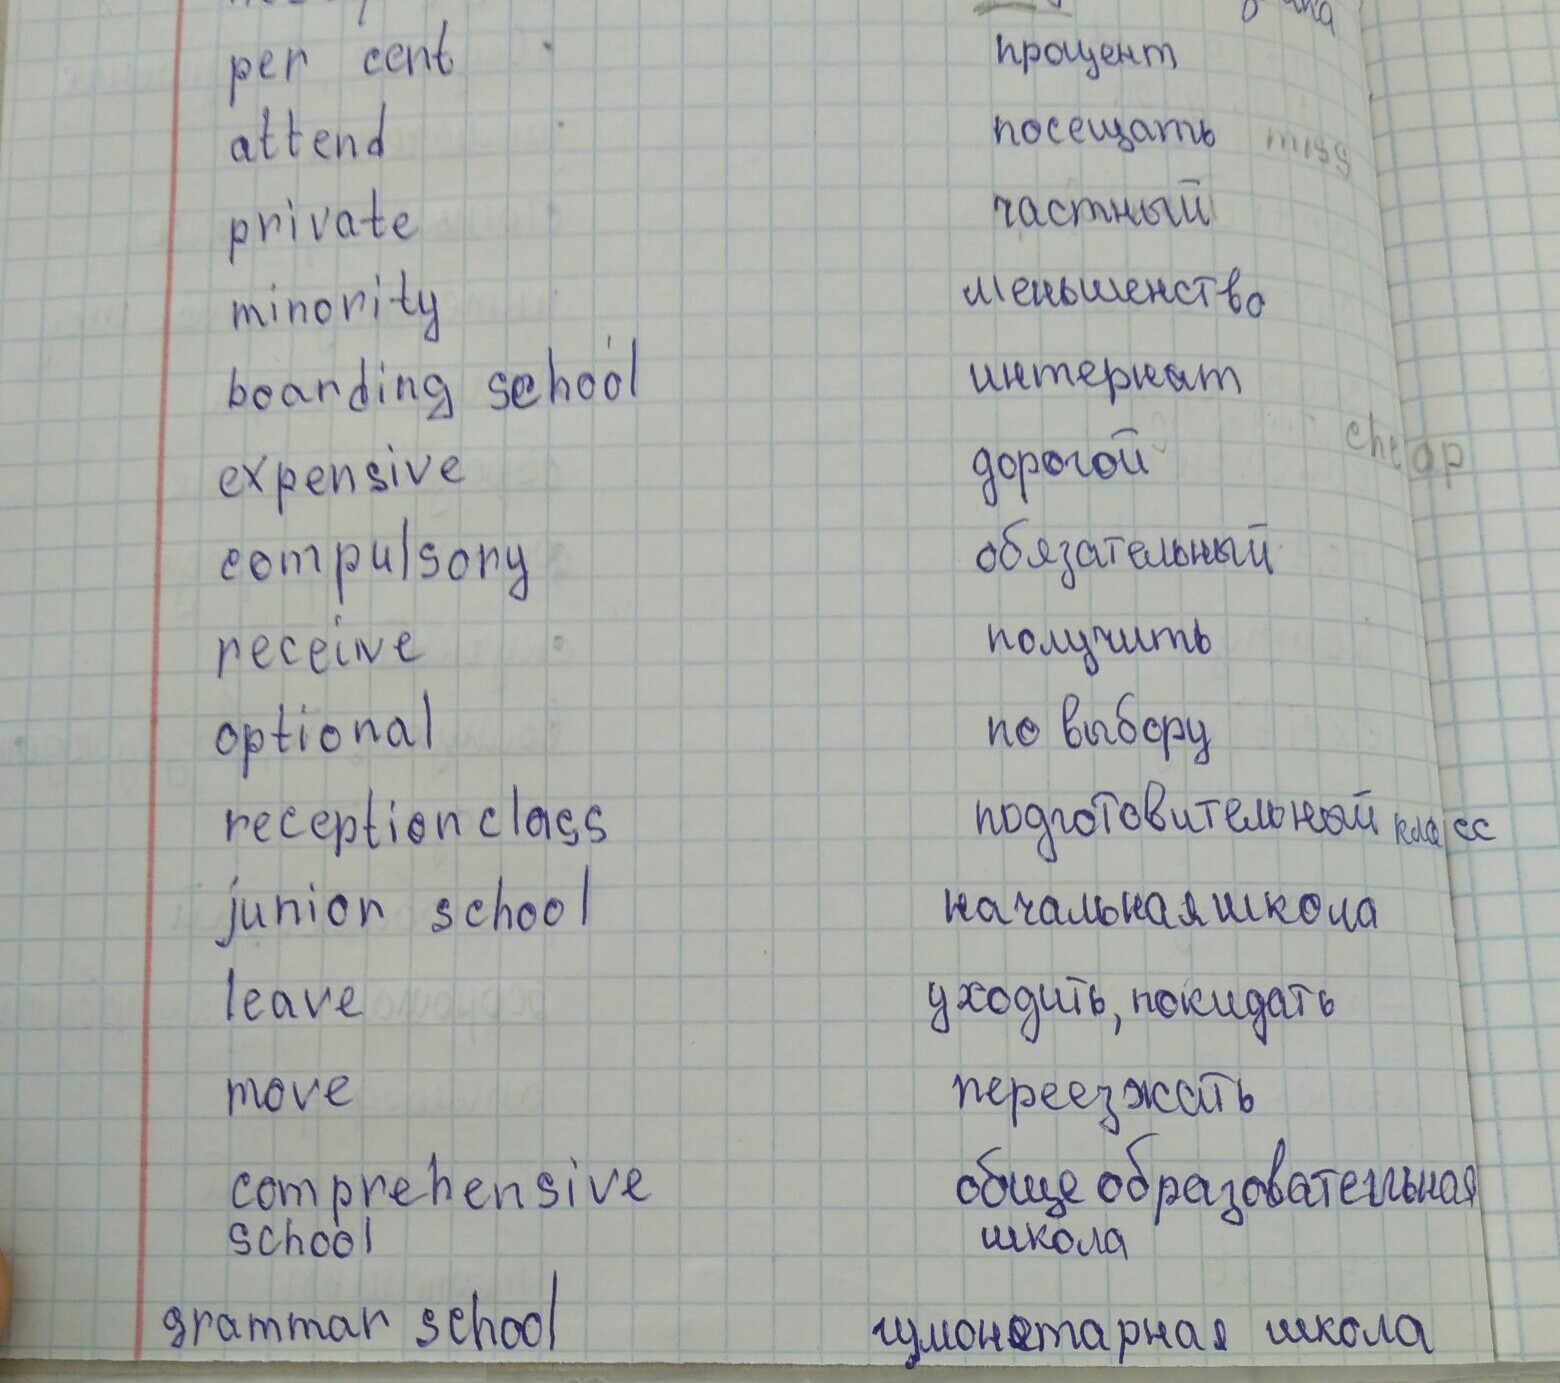 per cent процент
attend посещать miss
private частный
minority меньшенство
boarding school интернат
expensive дорогой cheap
compulsory обязательный
receive получить
optional по выбору
reception class подготовительный класс
junior school начальная школа
leave уходить, покидать
move переезжать
comprehensive общеобразовательная
school школа
grammar school гумонетарная школа